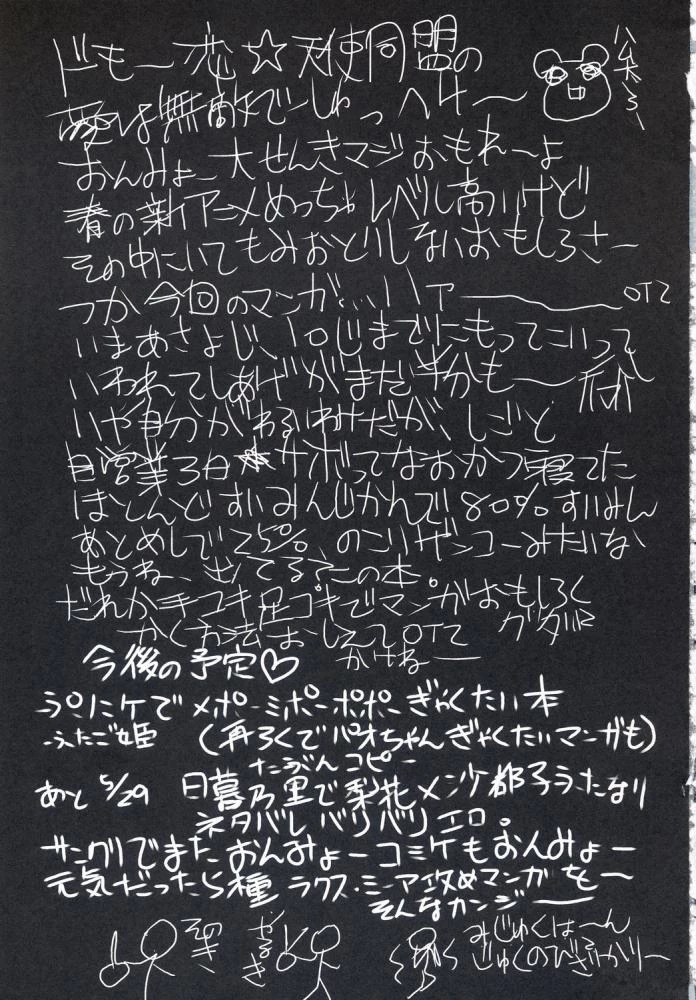 ドもー恋☆天使同盟の
愛は無敵でーしゅっ へけ〜
おんみょー大せんきマジおもれーよ
春の新アニメめっちゃレベル高いけど
その中にいてもみおとりしないおもしろさー
つか今回のマンガ…ハァ――――OTZ
いまあさ じ、10じまでにもってこいって
いわれてしあげがまだ半分も――
いや自分がわるいわけだが、しごと
自営業3日 サボってなおかつ寝てた
ほとんどすいみんじかんで80%すいみん
あとめしで25% のこりザンコーみたいな
もうね、出てる?この本。
だれか手コキ足コキでマンガおもしろく
かく方法おしえてOTZ グタリ
かけねー
今後の予定♡
ぷにケでメポーミポーポポーぎゃくたい本
ふたご姫 (再ろくでパオちゃんぎゃくたいマンガも)
たぶんコピー
あと 5/29 日暮乃里で梨花メンケ都子うたなり
ネタバレバリバリエロ。
サングリでまたおんみょーコミケもおんみょー
元気だったら種 ラクス・ミーア攻めマンガを〜
そんなカンジ――
そのき
やるき
みじゅくはーん
じゅくのびざかりー